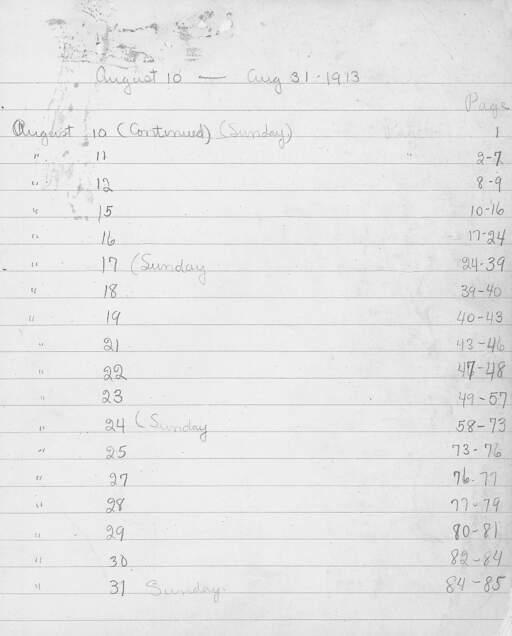 August 10 — Aug 31 - 1913
Page
August 10 (Continued) (Sunday) 1
" 11 " 2-7
" 12 8-9
" 15 10-16
" 16 17-24
" 17 (Sunday 24-39
" 18 39-40
" 19 40-43
" 21 43-46
" 22 47-48
" 23 49-57
" 24 (Sunday 58-73
" 25 73-76
" 27 76-77
" 28 77-79
" 29 80-81
" 30 82-84
" 31 Sunday. 84-85